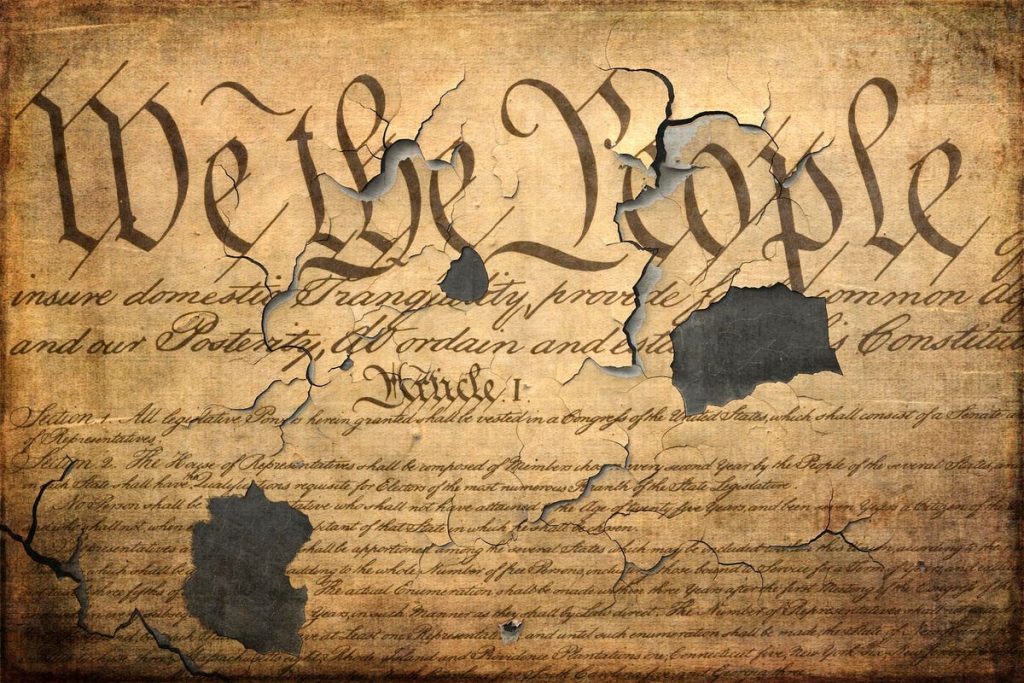 We the People
insure domestic Tranquility, provide common
and our Posterity, do ordain and
Article. I.
Section. 1. All legislative Powers herein granted shall be vested in a Congress of the United States, which shall consist of a Senate
of Representatives.
Section. 2. The House of Representatives shall be composed of Members chosen every second Year by the People of the several States, and
in each State shall have the Qualifications requisite for Electors of the most numerous Branch of the State Legislature.
No Person shall be who shall not have attained to the Age of twenty five Years, and been seven Years a Citizen of the
shall not, when of that State in which he shall be chosen.
shall be apportioned among the several States which may be included within this Union, according to
which shall be adding to the whole Number of free Persons, including those bound to Service for a Term of Years, and
three fifths of The actual Enumeration shall be made within three Years after the first Meeting of the Congress of
Years, in such Manner as they shall by Law direct. The Number of Representatives shall not
at Least one Representative; and until such enumeration shall be made, the State of
Massachusetts eight, Rhode Island and Providence Plantations one, Connecticut five, New York six, New Jersey
South Carolina five, and Georgia three.